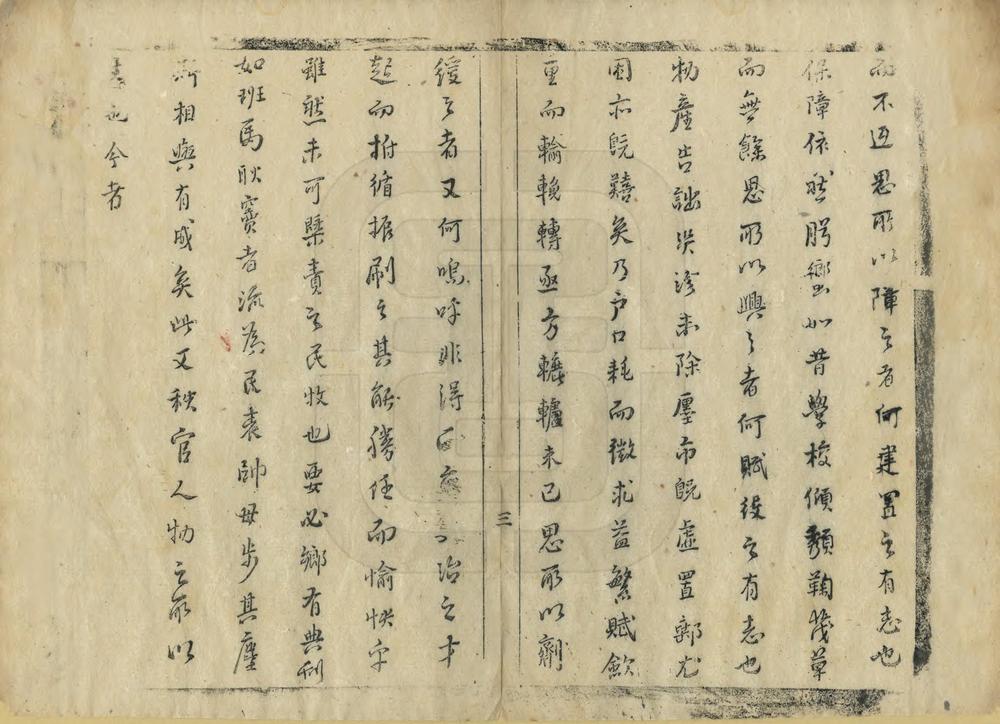 而不迅思所以障之者何建置之有志也
保障依然腭鄉如昔學校傾頽鞠茂草
而無餘思所以興之者何賦役之有志也
物產告詘災沴未除厘市旣虛置郵尤
困亦旣囏矣乃户口耗而徵求益繁賦歛
重而輸輓轉亟方轆轤未已思所以劑
三
緩之者又何嗚呼非得治之才
起而拊循振刷之其能勝任而愉快乎
雖然未可槩責之民牧也要必鄉有典刑
如班馬耿竇者流為民表帥毋步其塵
斯相與有成矣此又秩官人物之所以
志也今者